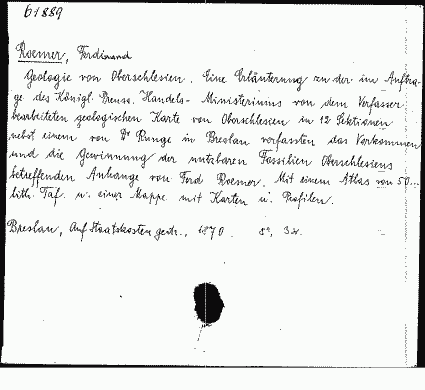 61889
Roemer, Ferdinand
Geologie von Oberschlesien. Eine Erläuterung zu der im Auftra-
ge des Königl. Preuss. Handels-Ministeriums von dem Verfasser
bearbeiteten geologischen Karte von Oberschlesien in 12 Sektionen
nebst einem von Dr Runge in Breslau verfassten das Vorkommen
und die Gewinnung der nutzbaren Fossilien Oberschlesiens
betreffenden Anhange von Ferd Roemer. Mit einem Atlas von 50
lith. Taf. u. einer Mappe mit Karten u. Profilen.
Breslau, Auf Staatskosten gedr., 1870. 8°,